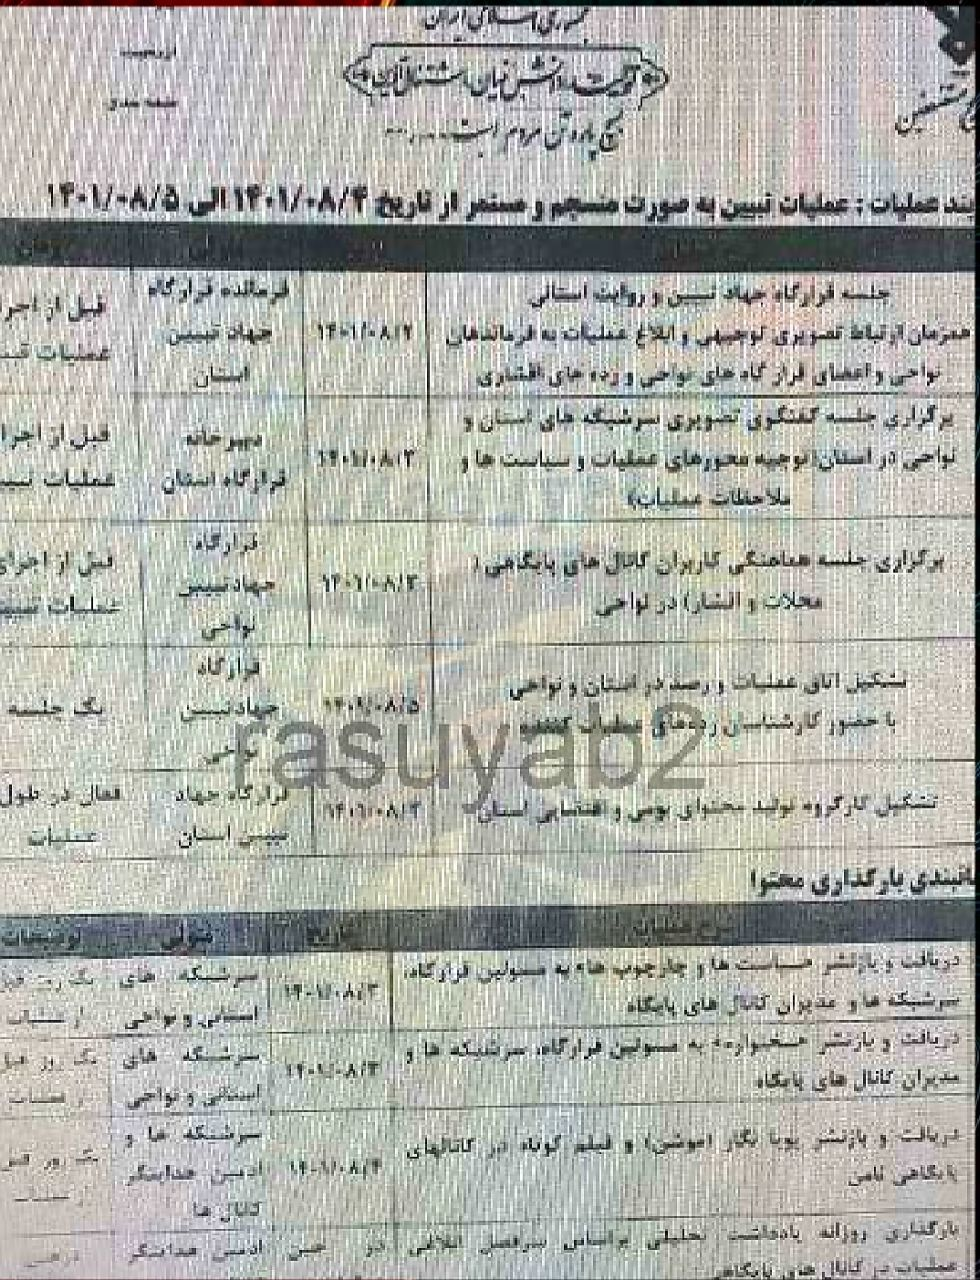 جمهوری اسلامی ایران
تولید، دانش بنیان، اشتغال آفرین
بسیج پاره تن مردم است
مستضعفین
عملیات : عملیات تبیین به صورت منسجم و مستمر از تاریخ ۱۴۰۱/۰۸/۴ الی ۱۴۰۱/۰۸/۵
جلسه قرارگاه جهاد تبیین و روایت استانی
همزمان ارتباط تصویری توجیهی و ابلاغ عملیات به فرماندهان
نواحی و اعضای قرار گاه های نواحی و رده های اقشاری
۱۴۰۱/۰۸/۲
فرمانده قرارگاه
جهاد تبیین
استان
قبل از اجرا
عملیات
برگزاری جلسه گفتگوی تصویری سرشبکه های استان و
نواحی در استان(توجیه محورهای عملیات و سیاست ها و
ملاحظات عملیات)
دبیرخانه
قرارگاه استان
قبل از اجرا
عملیات
برگزاری جلسه هماهنگی کاربران کانال های پایگاهی (
محلات و اقشار) در نواحی
۱۴۰۱/۰۸/۳
قرارگاه
جهاد تبیین
نواحی
قبل از اجرای
عملیات
تشکیل اتاق عملیات و رصد در استان و نواحی
با حضور کارشناسان رده‌های عملیات کننده
۱۴۰۱/۰۸/۵
قرارگاه
جهاد تبیین
نواحی
یک جلسه
rasuyab2
تشکیل کارگروه تولید محتوای بومی و اقتضایی استان
۱۴۰۱/۰۸/۳
قرارگاه جهاد
تبیین استان
فعال در طول
عملیات
بارگذاری محتوا
شرح عملیات
تاریخ
متولی
توضیحات
دریافت و بازنشر «سیاست ها و چارچوب ها» به مسولین قرارگاه،
سرشبکه ها و مدیران کانال های پایگاه
۱۴۰۱/۰۸/۳
سرشبکه های
استانی و نواحی
یک روز قبل
از عملیات
دریافت و بازنشر به مسولین قرارگاه، سرشبکه ها و
مدیران کانال های پایگاه
۱۴۰۱/۰۸/۳
سرشبکه های
استانی و نواحی
یک روز قبل
از عملیات
دریافت و بازنشر پویا نگار (موشن) و فیلم کوتاه در کانالهای
پایگاهی ثامن
۱۴۰۱/۰۸/۴
سرشبکه ها و
ادمین هدایتگر
کانال ها
یک روز قبل
بارگذاری روزانه یادداشت تحلیلی براساس سرفصل ابلاغی
عملیات در کانال های پایگاهی
در حین
ادمین هدایتگر